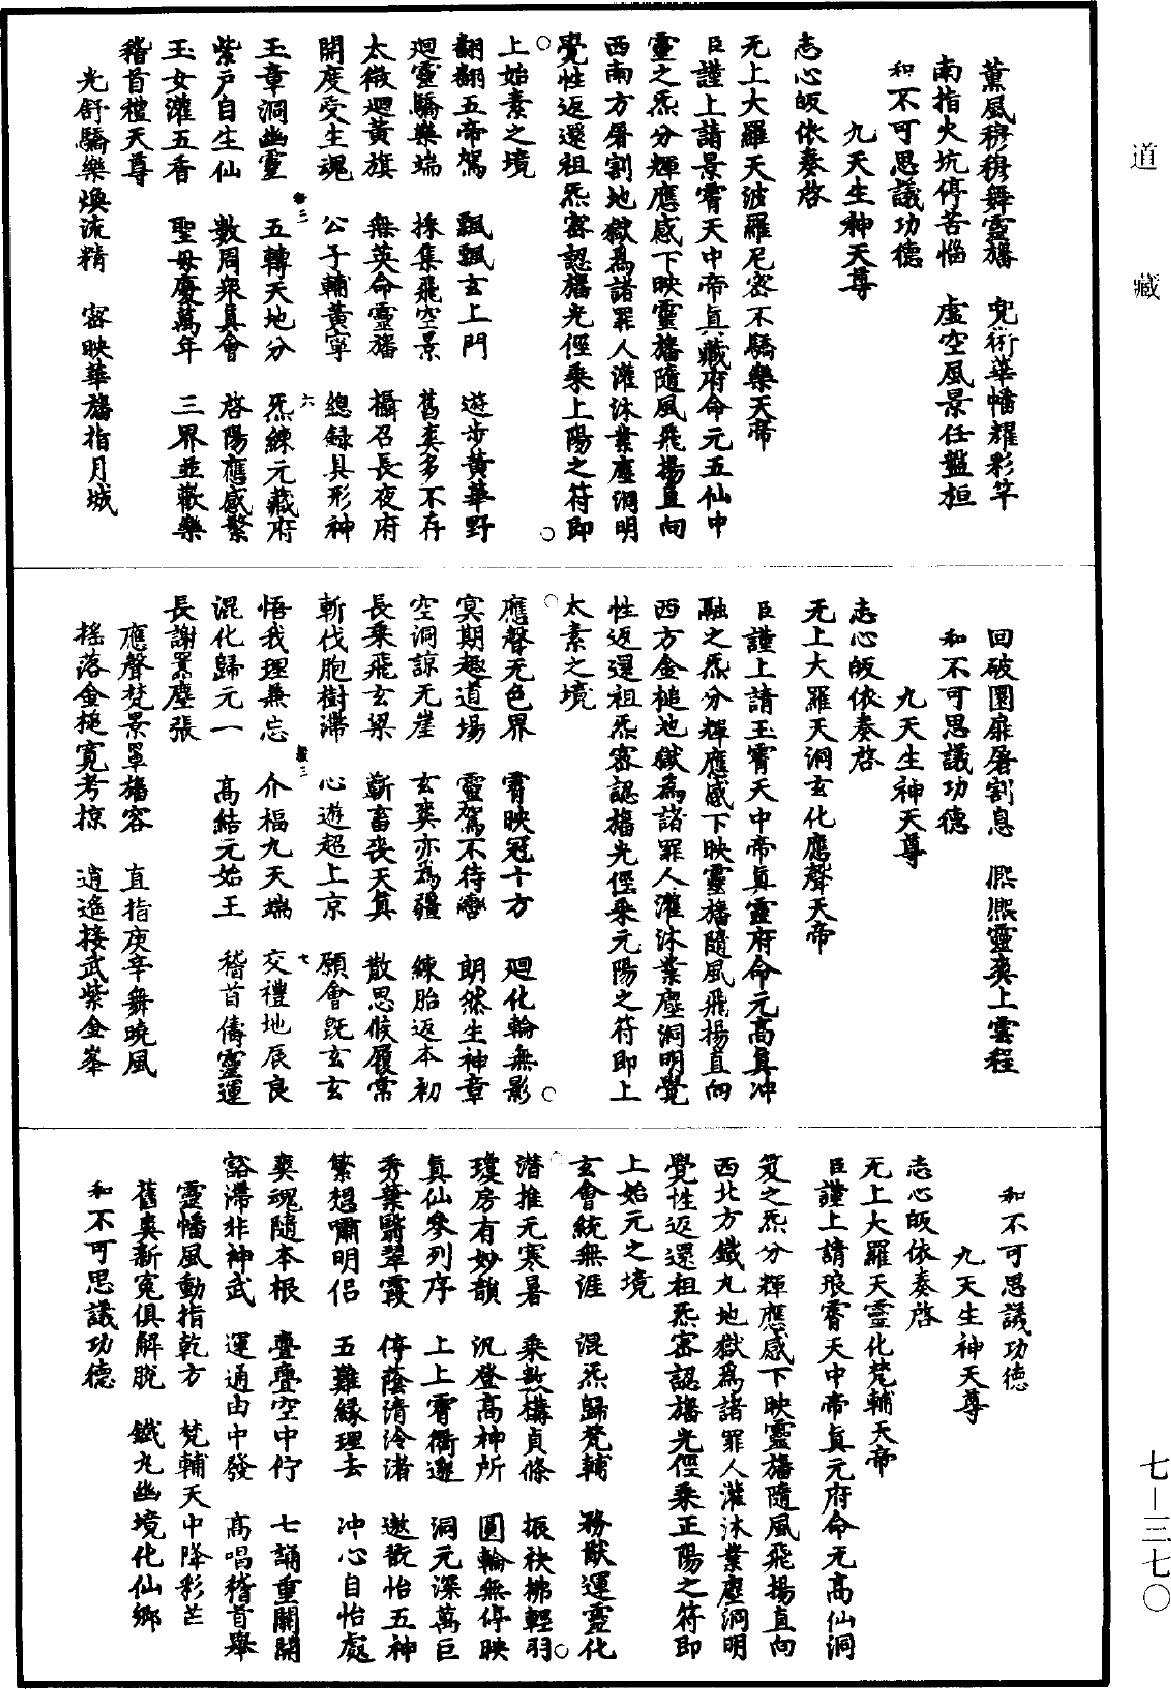 道藏
薰風穆穆舞靈旛　兜術華幡耀彩竿
南指火坑停苦惱　虛空風景任盤桓
和不可思議功德
九天生神天尊
志心皈依奏啓
无上大羅天波羅尼密不驕樂天帝
臣謹上請景霄天中帝真藏府命元五仙中
靈之炁分輝應感下映靈旛隨風飛揚直向
西南方屠割地獄為諸罪人灌沐業塵洞明
覺性返還祖炁密認旛光徑乘上陽之符即
上始素之境
○翻翻五帝駕　飄飄玄上門　遊步黃華野○
迴靈驕樂端　採集飛空景　舊爽多不存
太微迴黃旗　無英命靈旛　攝召長夜府
開度受生魂　公子輔黃寧　總錄具形神
玉章洞幽靈　五轉天地分　炁練元藏府
卷三　六
紫戶自生仙　數周衆真會　啓陽應感繁
玉女灌五香　聖母慶萬年　三界並歡樂
稽首禮天尊
光舒驕樂煥流精　密映華旛指月城
回破園扉屠割息　熙熙靈爽上雲程
和不可思議功德
九天生神天尊
志心皈依奏啓
无上大羅天洞玄化應聲天帝
臣謹上請玉霄天中帝真靈府命元高真冲
融之炁分輝應感下映靈旛隨風飛揚直向
西方金槌地獄為諸罪人灌沐業塵洞明覺
性返還祖炁密認旛光徑乘元陽之符即上
太素之境
○應聲无色界　霄映冠十方　迴化輪無影○
冥期趣道場　靈駕不待轡　朗然生神章
空洞諒无崖　玄爽亦為疆　練胎返本初
長乘飛玄梁　蘄畜喪天真　散思候履常
斬伐胞樹滯　心遊超上京　願會旣玄玄
悟我理兼忘　介福九天端　交禮地辰良
卷三　七
混化歸元一　高結元始王　稽首儔靈運
長謝累塵張
應聲梵景罩旛容　直指庚辛舞曉風
搖落金槌寬考掠　逍遙接武紫金峯
和不可思議功德
九天生神天尊
志心皈依奏啓
无上大羅天靈化梵輔天帝
臣謹上請琅霄天中帝真元府命元高仙洞
笈之炁分輝應感下映靈旛隨風飛揚直向
西北方鐵丸地獄為諸罪人灌沐業塵洞明
覺性返還祖炁密認旛光徑乘正陽之符即
上始元之境
玄會統無涯　混炁歸梵輔　務猷運靈化○
潛推无寒暑　乘數構貞條　振袂拂輕羽
瓊房有妙韻　汎登高神所　圓輪無停映
真仙參列序　上上霄衢邃　洞元深萬巨
秀葉翳翠霞　停蔭清泠渚　遨翫怡五神
繁想嘯明侣　五難緣理去　冲心自怡處
爽魂隨本根　亹亹空中佇　七誦重關開
豁滯非神武　運通由中發　高唱稽首舉
靈幡風動指乾方　梵輔天中降彩芒
舊爽新寃俱解脫　鐵丸幽境化仙鄉
和不可思議功德
七－三七〇